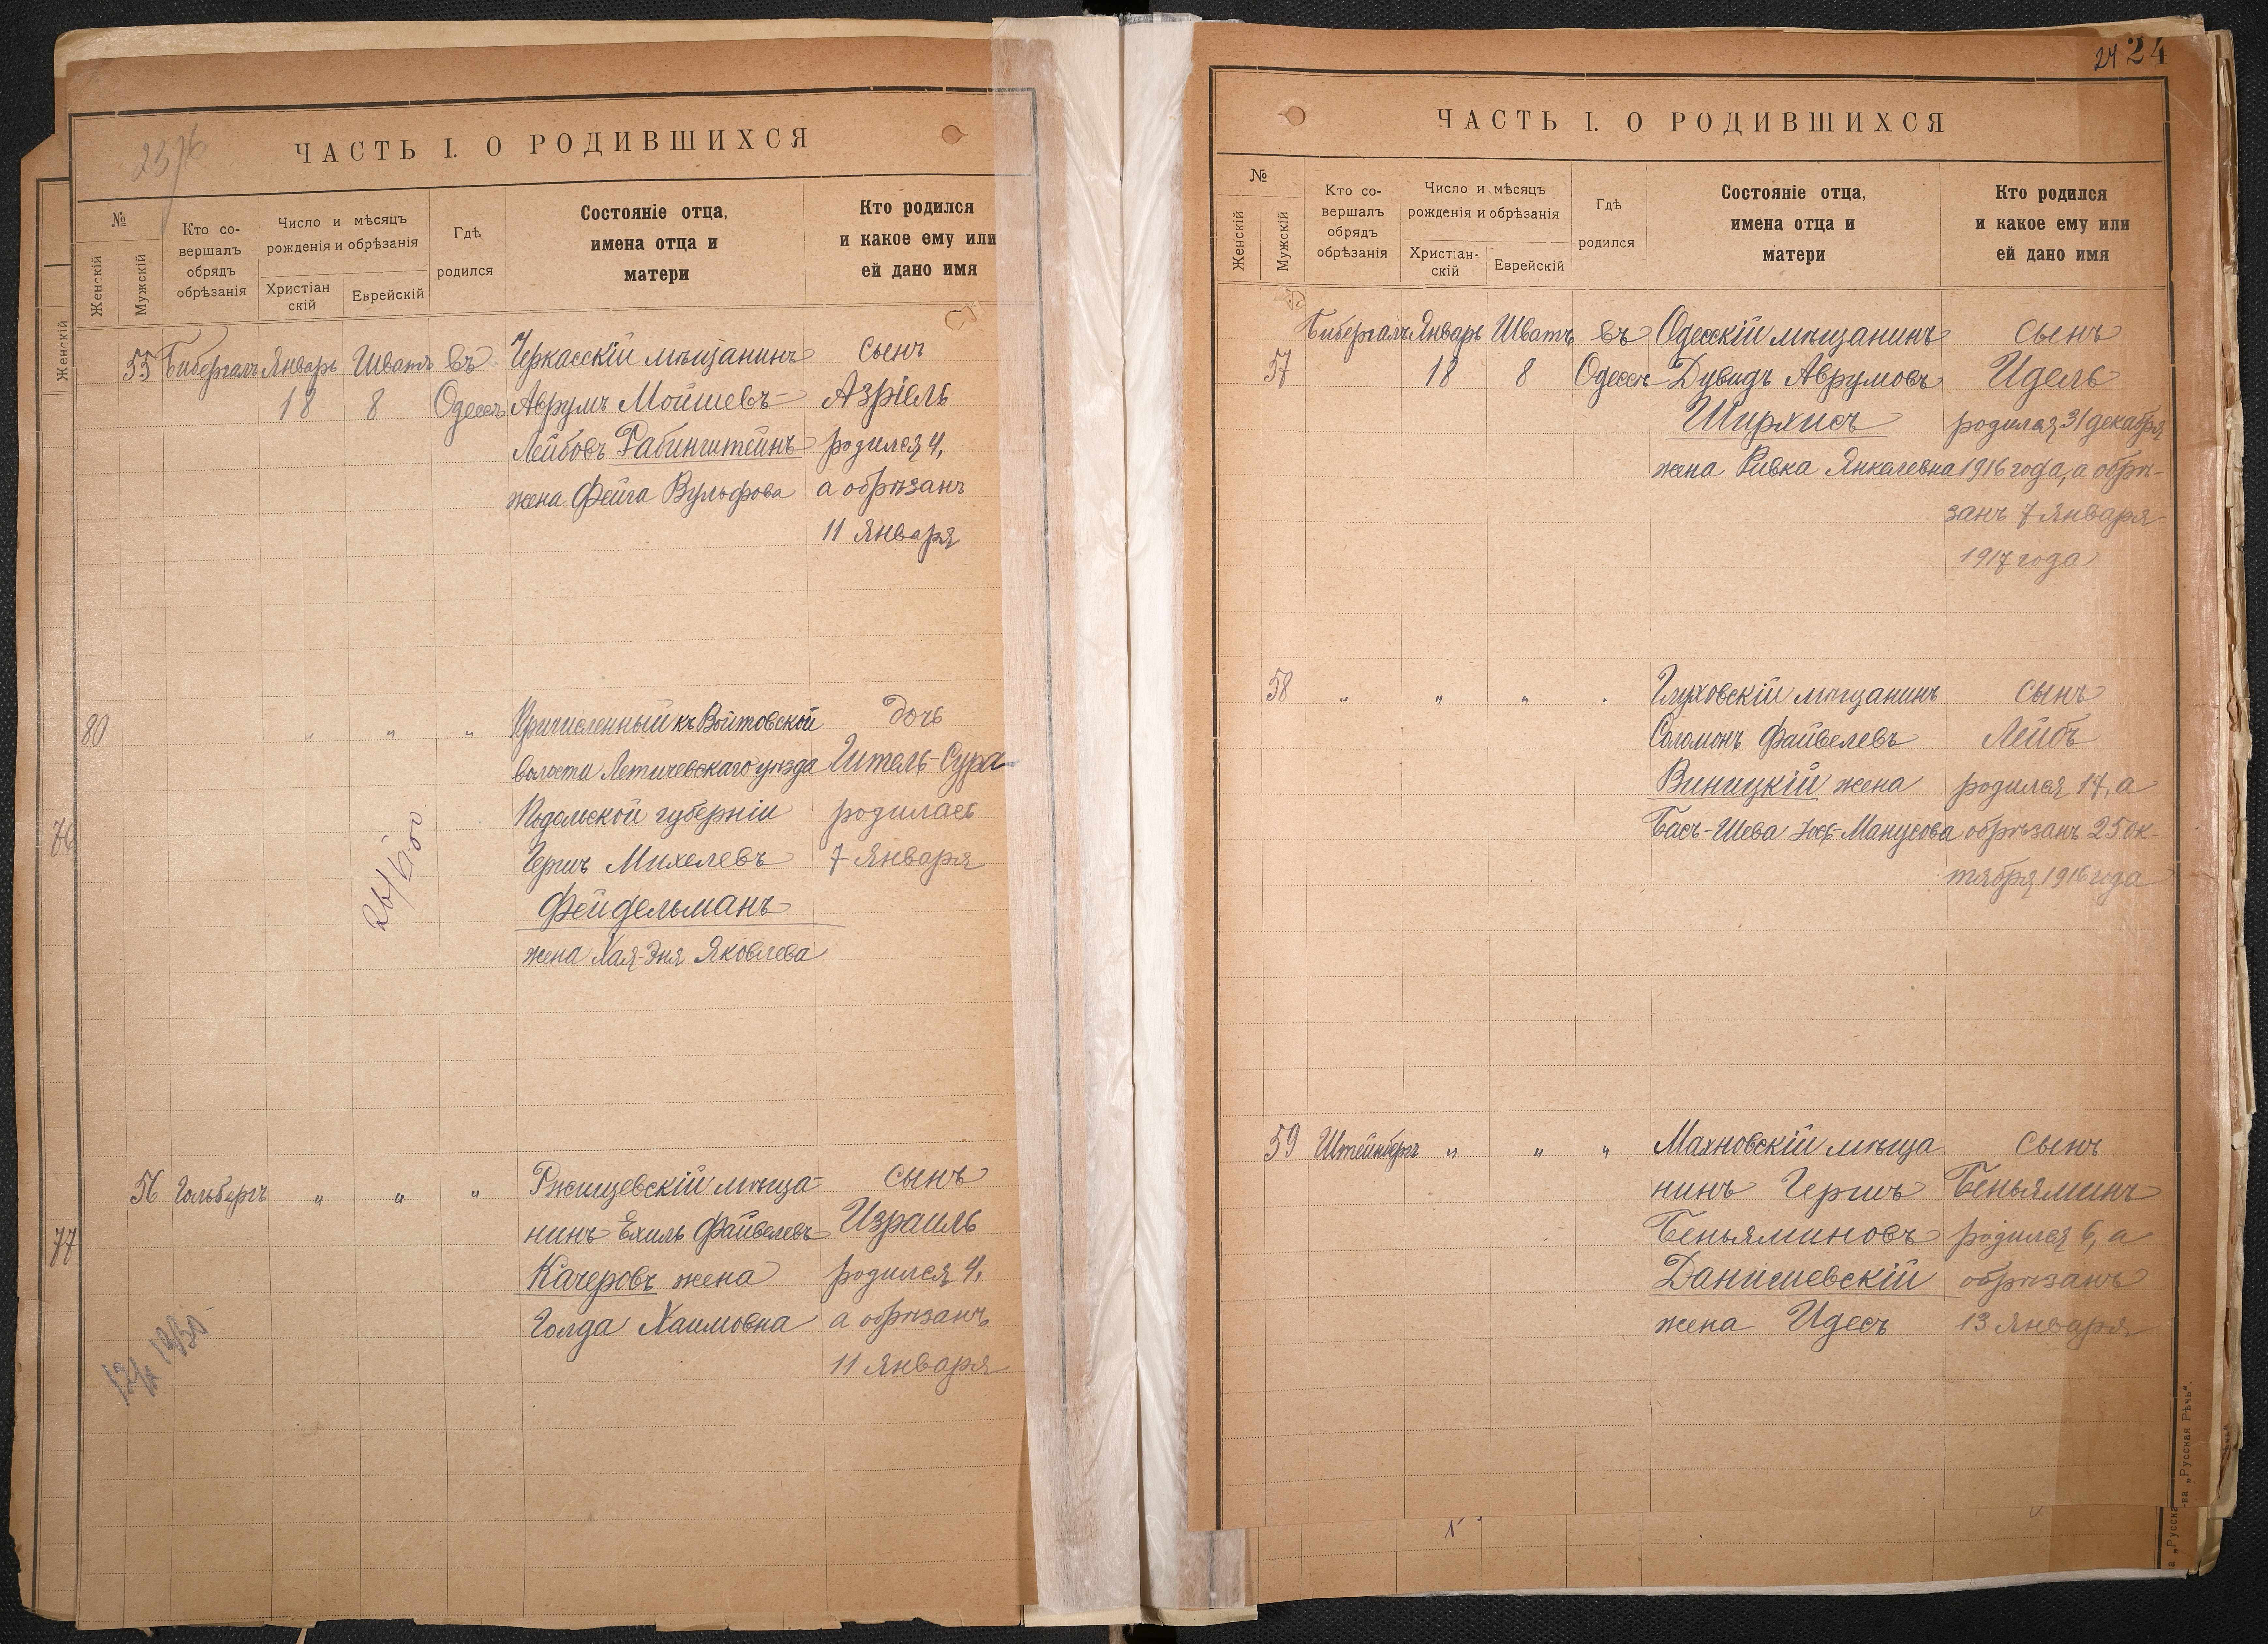 ЧАСТЬ I. О РОДИВШИХСЯ
№
Женскій
Мужскій
Кто со-
вершалъ
обрядъ
обрѣзанія
Число и мѣсяцъ
рожденія и обрѣзанія
Христіан
скій
Еврейскій
Гдѣ
родился
Состояніе отца,
имена отца и
матери
Кто родился
и какое ему или
ей дано имя
55 Бибергалъ Январь Шватъ въ Черкасскій мѣщанинъ сынъ
18 8 Одессѣ Аврумъ Мойшевъ- Азріель
Лейбовъ Рабинштейнъ родился 4,
жена Фейга Вульфова а обрѣзанъ
11 Января
80 " " " Причисленный къ Войтовской дочь
волости Летичевскаго уѣзда Гитель-Сура
Подольской губерніи родилась
Гершъ Михелевъ 7 Января
Фейдельманъ
жена Хая-Эня Яковлева
56 Гольбергъ " " " Ржищевскій мѣща- сынъ
нинъ Ехиль Файвелевъ Израиль
Качеровъ жена родился 4,
Голда Хаимовна а обрѣзанъ
11 Января
Женскій
76
77
24 24
ЧАСТЬ I. О РОДИВШИХСЯ
№
Женскій
Мужскій
Кто со-
вершалъ
обрядъ
обрѣзанія
Число и мѣсяцъ
рожденія и обрѣзанія
Христіан-
скій
Еврейскій
Гдѣ
родился
Состояніе отца,
имена отца и
матери
Кто родился
и какое ему или
ей дано имя
Бибергалъ Январь Шватъ въ Одесскій мѣщанинъ сынъ
57 18 8 Одессѣ Дувидъ Аврумовъ Идель
Ширхисъ родился 31 декабря
жена Ривка Янкелевна 1916 года, а обрѣ-
занъ 7 Января
1917 года
58 " " " " Глуховскій мѣщанинъ сынъ
Соломонъ Файвелевъ Лейбъ
Виницкій жена родился 17, а
Басъ-Шева Манусова обрѣзанъ 25 ок-
тября 1916 года
59 Штейнбергъ " " " Махновскій мѣща сынъ
нинъ Гершъ Беньяминъ
Беньяминовъ родился 6, а
Данишевскій обрѣзанъ
жена Идесъ 13 Января
„Русская Рѣчь".